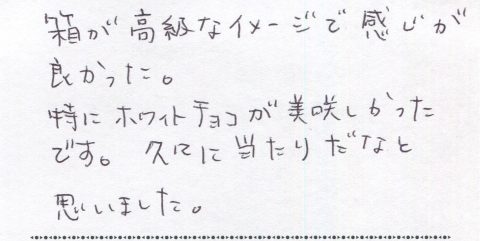 箱が高級なイメージで感じが
良かった。
特にホワイトチョコが美咲しかった
です。久々に当たりだなと
思いました。